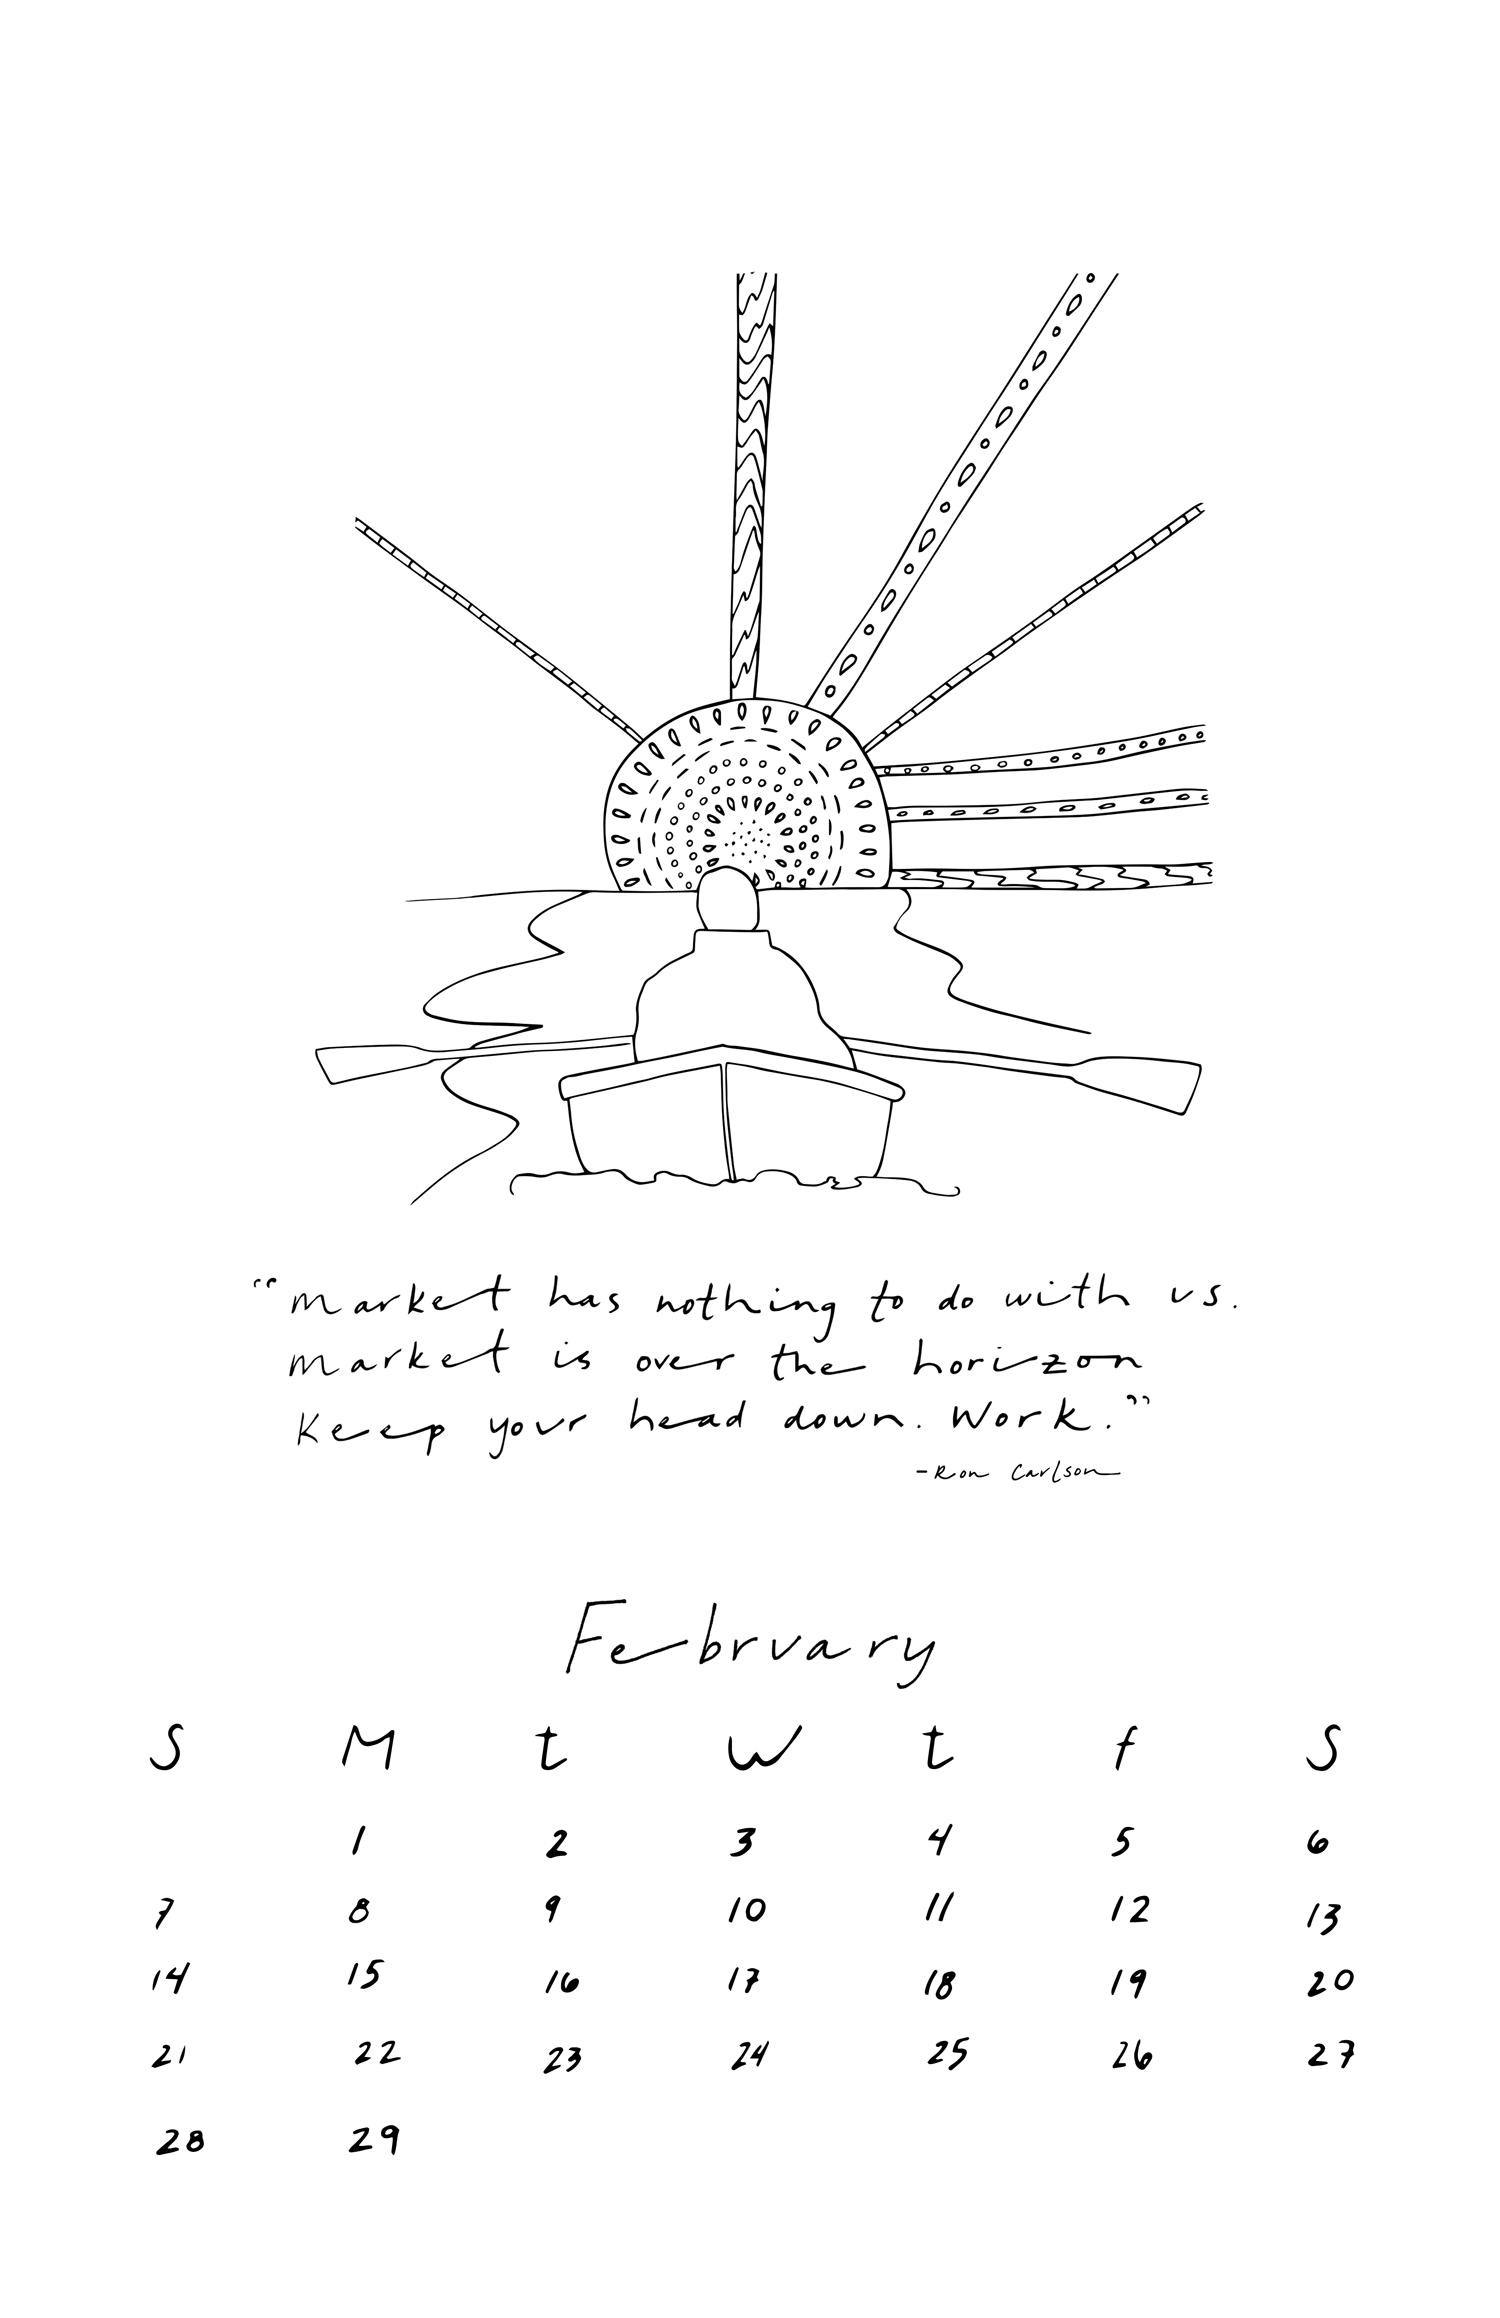 “Market has nothing to do with us.
Market is over the horizon
Keep your head down. Work.”
-Ron Carlson
February
S M t W t f S
1 2 3 4 5 6
7 8 9 10 11 12 13
14 15 16 17 18 19 20
21 22 23 24 25 26 27
28 29